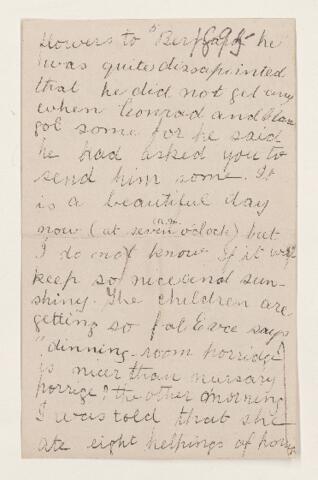 flowers to Berf
he
was quite dissapointed
that he did not get any
when Conrad and
got some for he said
he had asked you to
send him some. It
is a beautiful day
now (at seven o'clock a.m.) but
I do not know if it will
keep so nice and sun-
shiny. The children are
getting so fat Eva says
"dinning-room porridge
is nicer than nursary
porrige! the other morning
I was told that she
ate eight helpings of